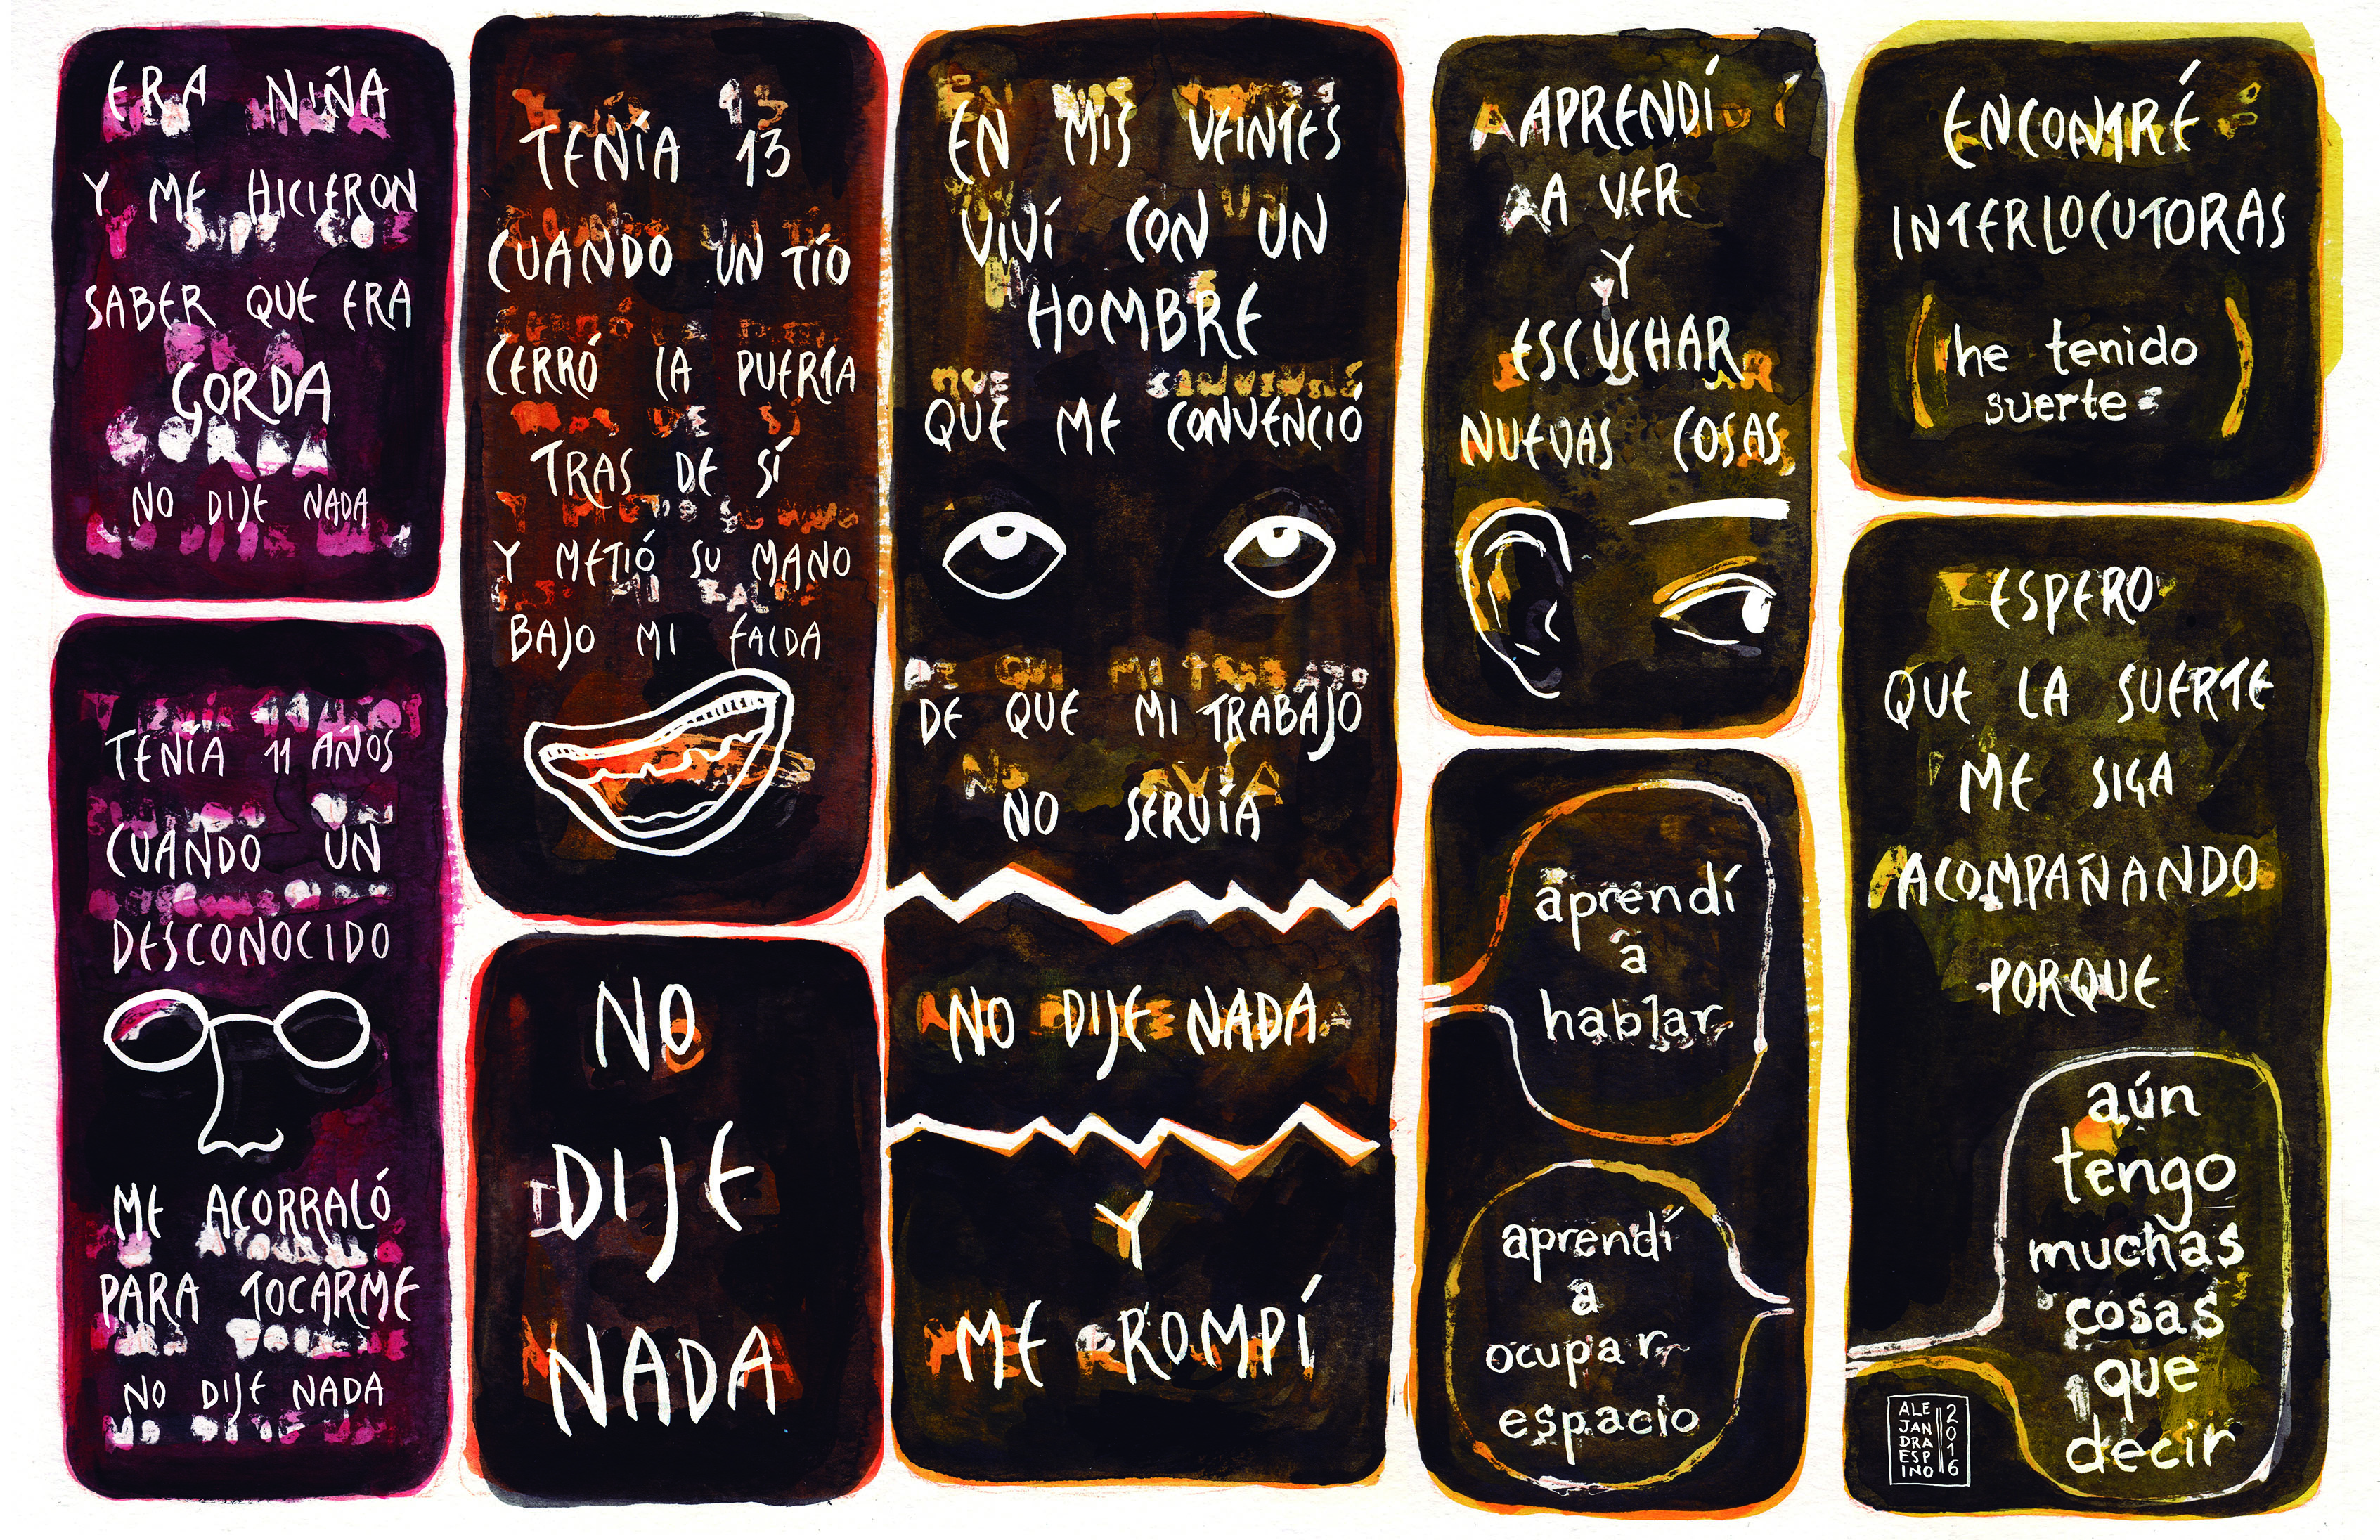 ERA NIÑA
Y ME HICIERON
SABER QUE ERA
GORDA
NO DIJE NADA
TENÍA 11 AÑOS
CUANDO UN
DESCONOCIDO
ME ACORRALÓ
PARA TOCARME
NO DIJE NADA
TENÍA 13
CUANDO UN TÍO
CERRÓ LA PUERTA
TRAS DE SÍ
Y METIÓ SU MANO
BAJO MI FALDA
NO
DIJE
NADA
EN MIS VEINTES
VIVÍ CON UN
HOMBRE
QUE ME CONVENCIÓ
DE QUE MI TRABAJO
NO SERVÍA
NO DIJE NADA
Y
ME ROMPÍ
APRENDÍ
A VER
Y
ESCUCHAR
NUEVAS COSAS
aprendí
a
hablar
aprendí
a
ocupar
espacio
ENCONTRÉ
INTERLOCUTORAS
(he tenido
suerte)
ESPERO
QUE LA SUERTE
ME SIGA
ACOMPAÑANDO
PORQUE
aún
tengo
muchas
cosas
que
decir
ALE
JAN
DRA
ESP
INO
2016